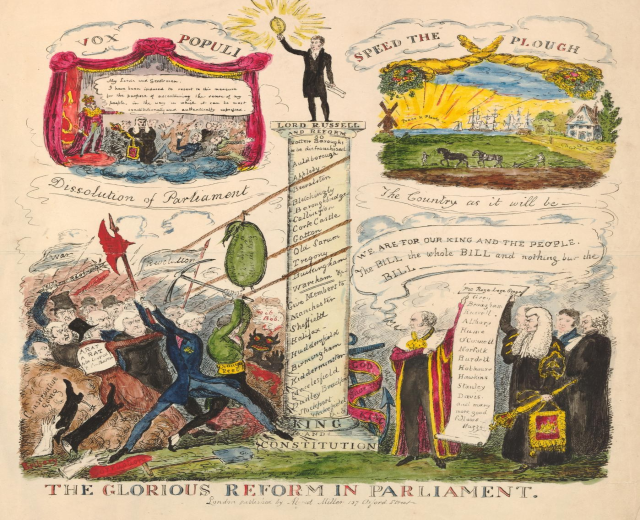 VOX POPULI
SPEED THE PLOUGH
My Lords and Gentlemen
I have been induced to resort to this measure
for the purpose of ascertaining the sense of my
people, in the way in which it can be most
constitutionally and authentically expressed
Dissolution of Parliament
The Country as it will be
LORD RUSSELL
AND REFORM
60
Rotten Boroughs
to be disfranchised
Aldborough
Appleby
Bramber
Bletchingly
Boroughbridge
Callington
Corfe Castle
Gatton
Old Sarum
Tregony
Buckingham
Wareham &c
Give Members to
Manchester
Sheffield
Halifax
Huddersfield
Birmingham
Kidderminster
Macclesfield
Dudley
Stockport
KING
AND
CONSTITUTION
War
Revolution
A RAT
A RAT
WE ARE FOR OUR KING AND THE PEOPLE.
The BILL the whole BILL and nothing but the
BILL
Grey
Brougham
Russell
Althorp
Hume
O'Connell
Norfolk
Burdett
Hobhouse
Hawkins
Stanley
Davis
and many
more good
THE GLORIOUS REFORM IN PARLIAMENT.
London published by